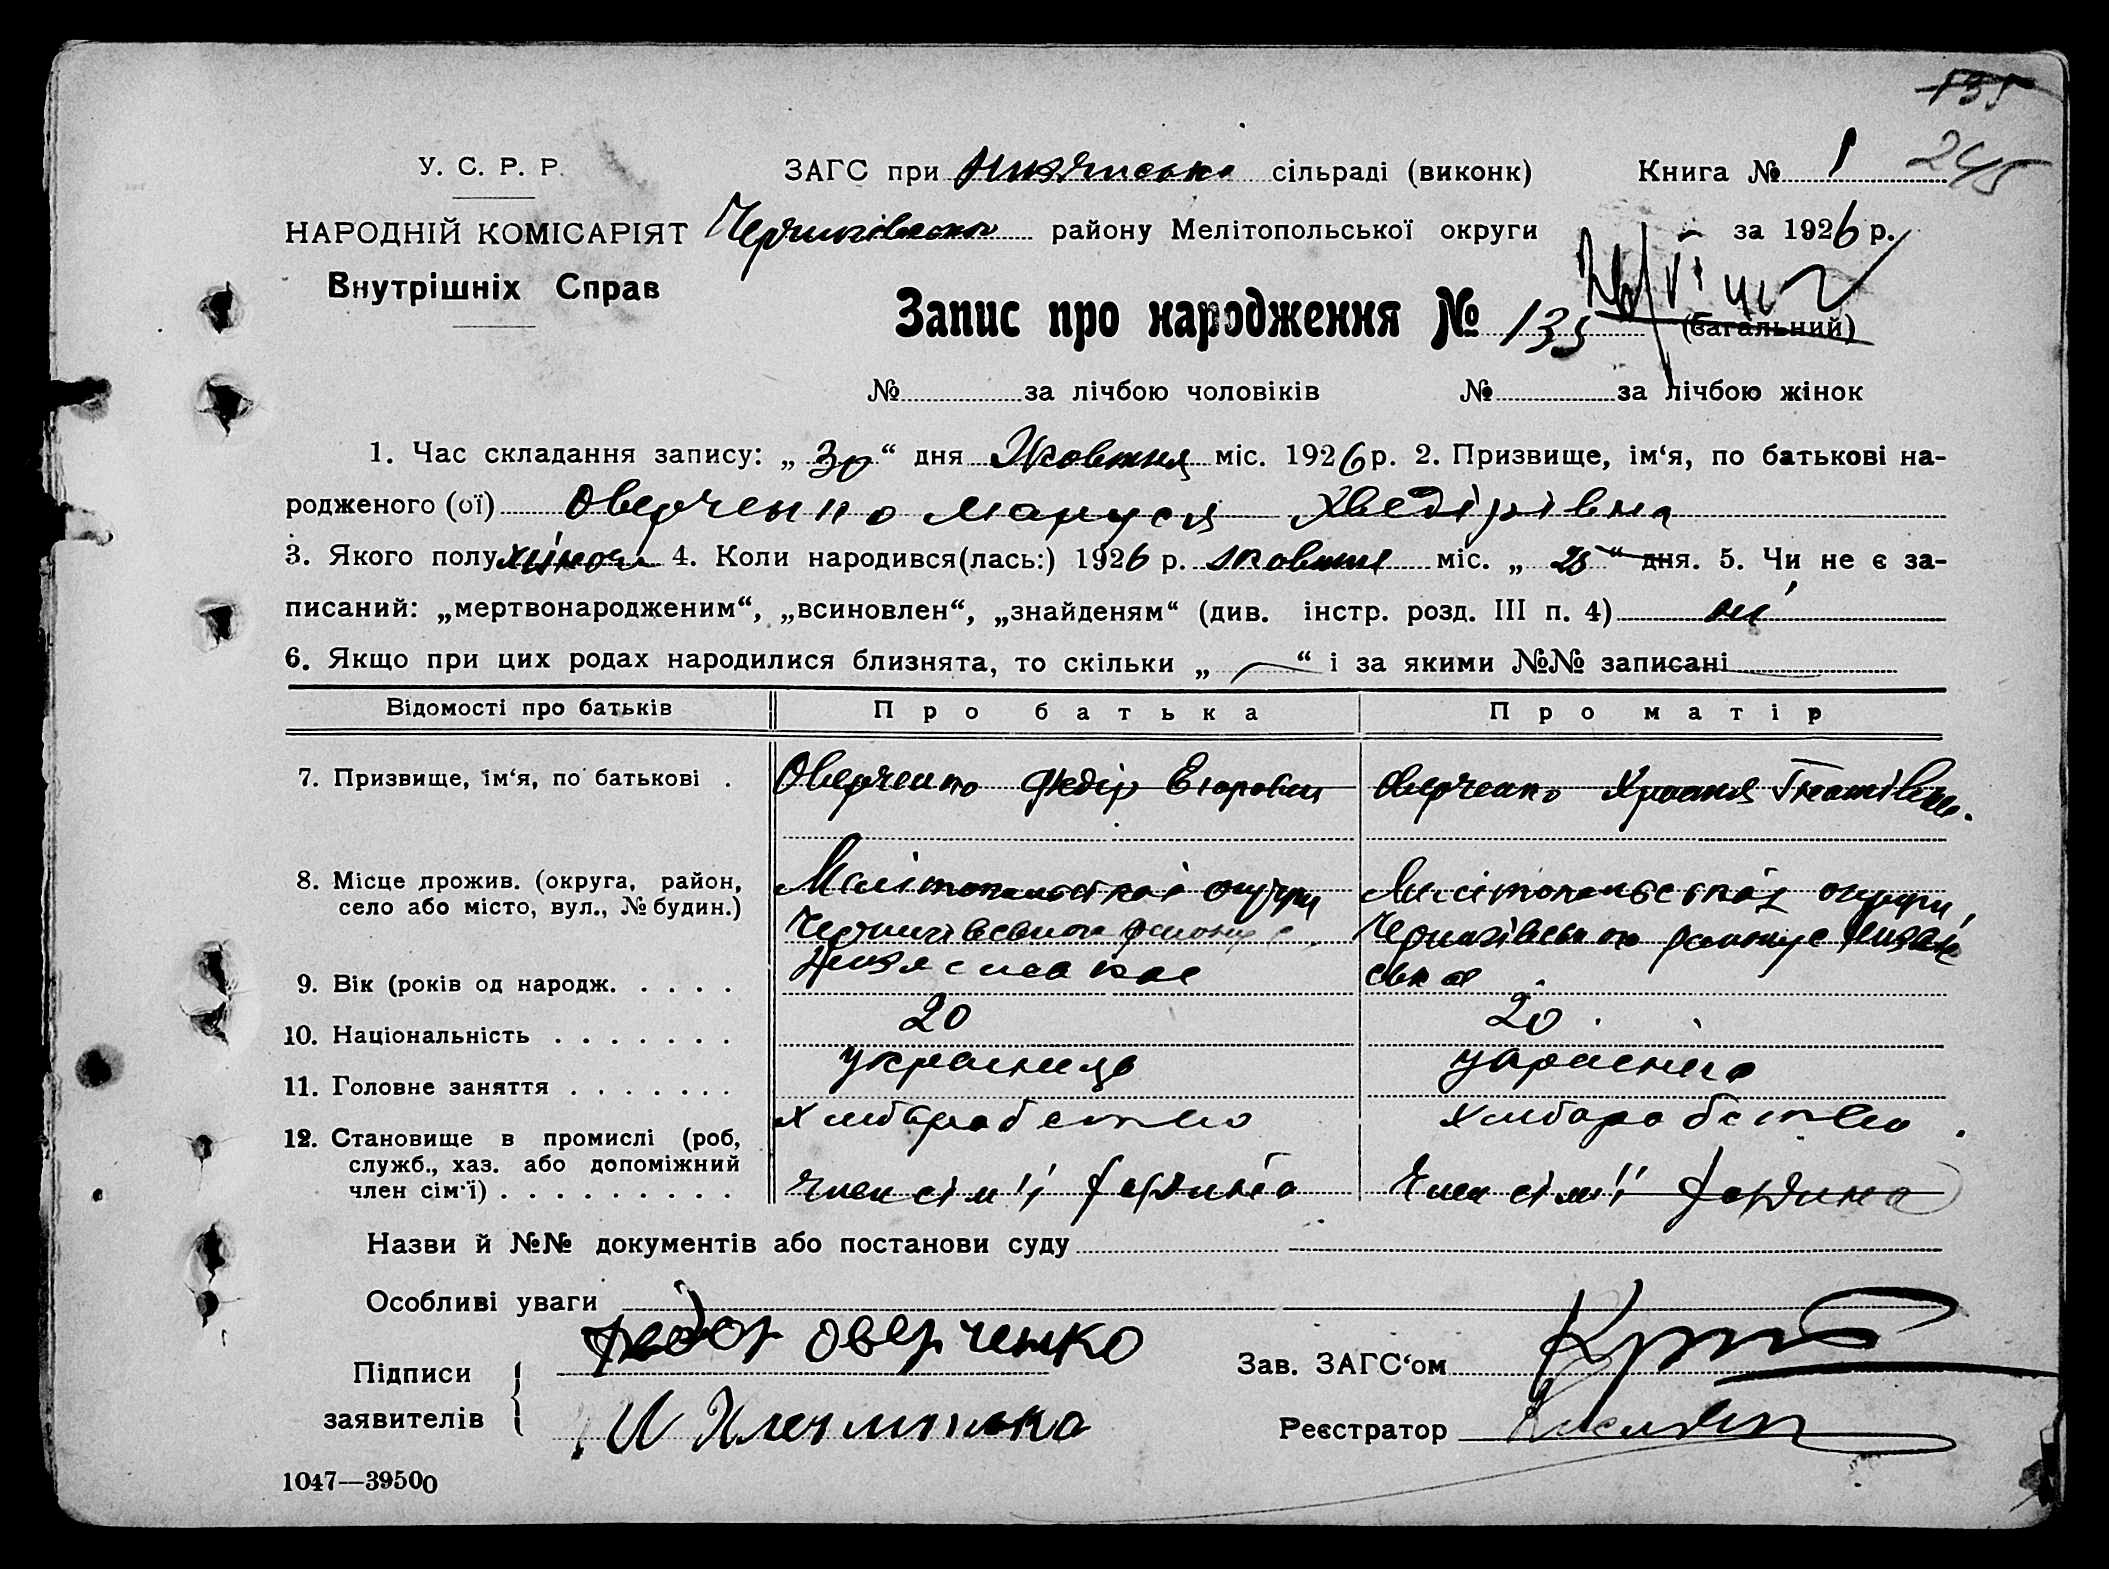 135
245
У. С. Р. Р.
ЗАГС при сільраді (виконк) Книга № 1
НАРОДНІЙ КОМІСАРІЯТ Чернигівського району Мелітопольської округи за 1926 р.
Внутрішніх Справ
Запис про народження № 135 (багальний)
№ за лічбою чоловіків № за лічбою жінок
1. Час складання запису: „ 30 “ дня Жовтня міс. 1926 р. 2. Призвище, ім‘я, по батькові на-
родженого (ої) Оверченко Маруся Хведірівна
3. Якого полу жіночи 4. Коли народився(лась:) 1926 р. жовтня міс. „ 25 “ дня. 5. Чи не є за-
писаний: „мертвонародженим“, „всиновлен“, „знайденям“ (див. інстр. розд. III п. 4) ні
6. Якщо при цих родах народилися близнята, то скільки „ — “ і за якими №№ записані
Відомості про батьків Про батька Про матір
7. Призвище, ім‘я, по батькові . Оверченко Федір Егорович Оверченко Христя Гнатівна.
8. Місце прожив. (округа, район, Мелітопольської округи Мелітопольської округи,
село або місто, вул., № будин.) Чернигівського району с. Чернигівського району с
9. Вік (років од народж. . . . .
20 20
10. Національність . . . . . . .
українець українка
11. Головне заняття . . . . . . .
хліборобство хліборобство
12. Становище в промислі (роб,
служб., хаз. або допоміжний
член сім‘ї) . . . . . . . . . член сім'ї член сім'ї
Назви й №№ документів або постанови суду
Особливі уваги
Підписи Федор Оверченко Зав. ЗАГС‘ом
заявителів Реєстратор
1047—39500